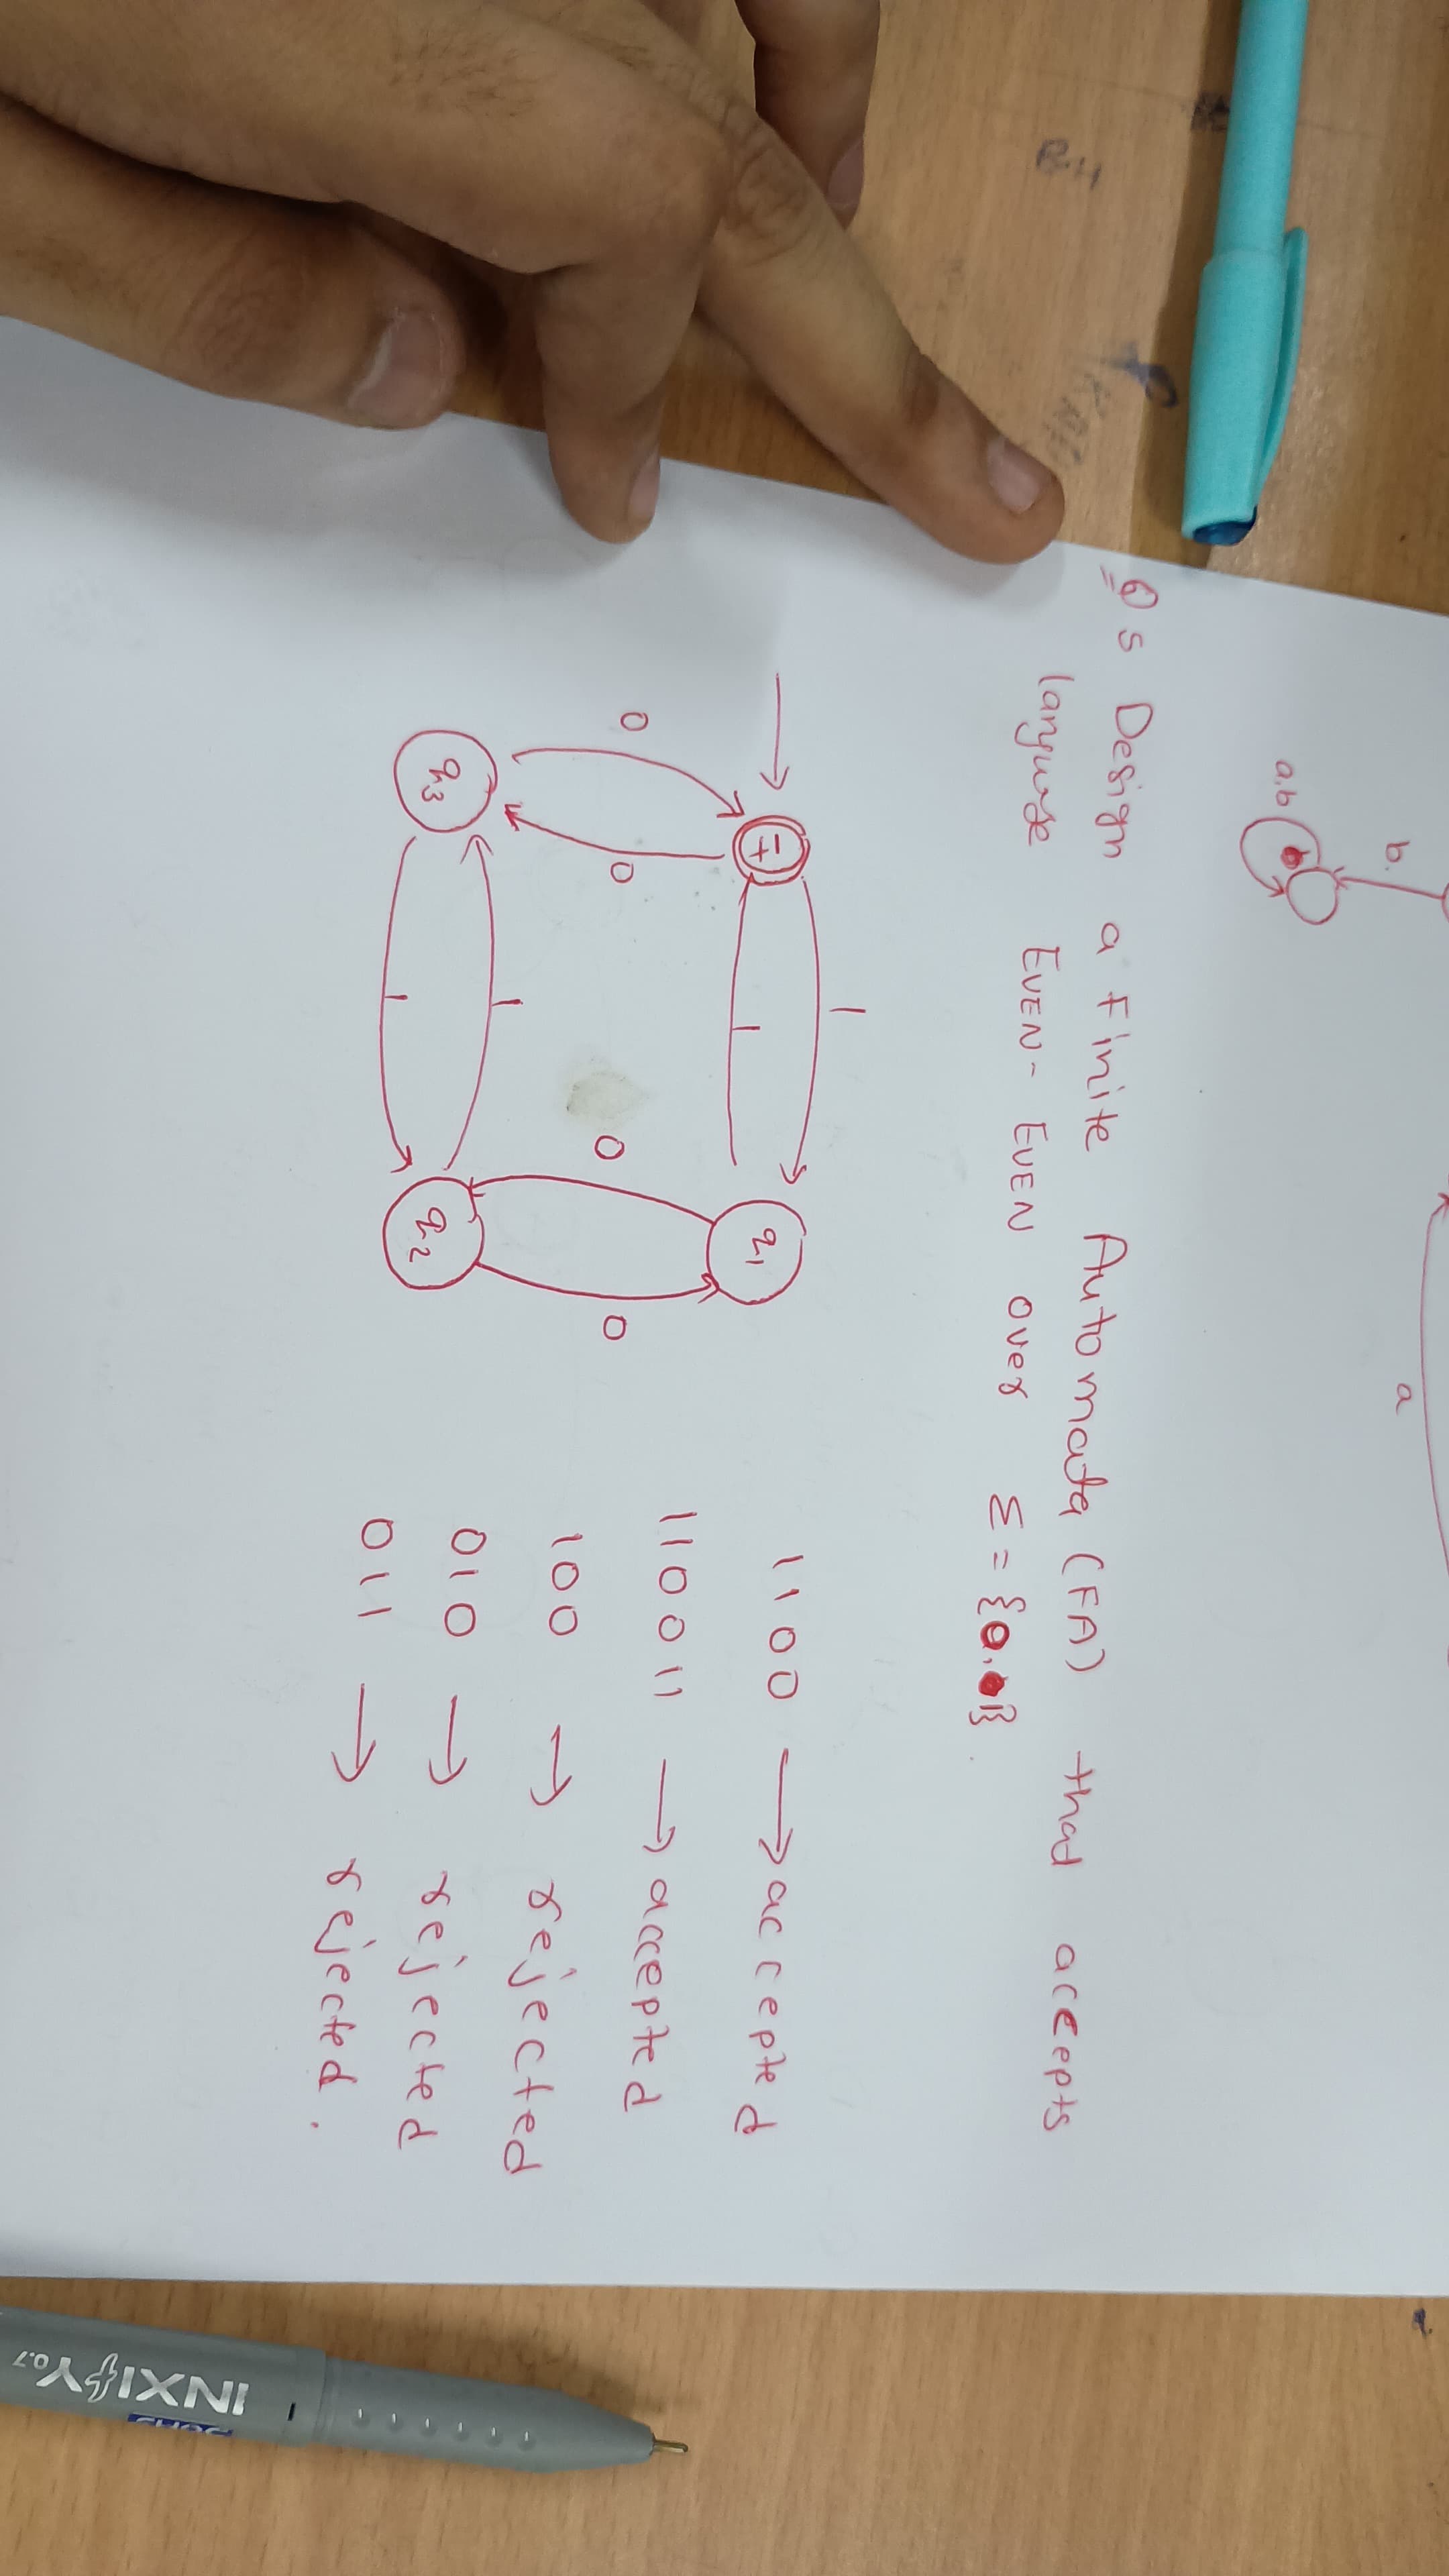 b.
a,b
a
Q5 Design a Finite Automata (FA) that accepts
languge EVEN-EVEN over Σ = {0,1}.
±
1
1
q1
0
0
0
0
q3
1
1
q2
1100 → accepted
110011 → accepted
100 → rejected
010 → rejected
011 → rejected.
INXIFY 0.7